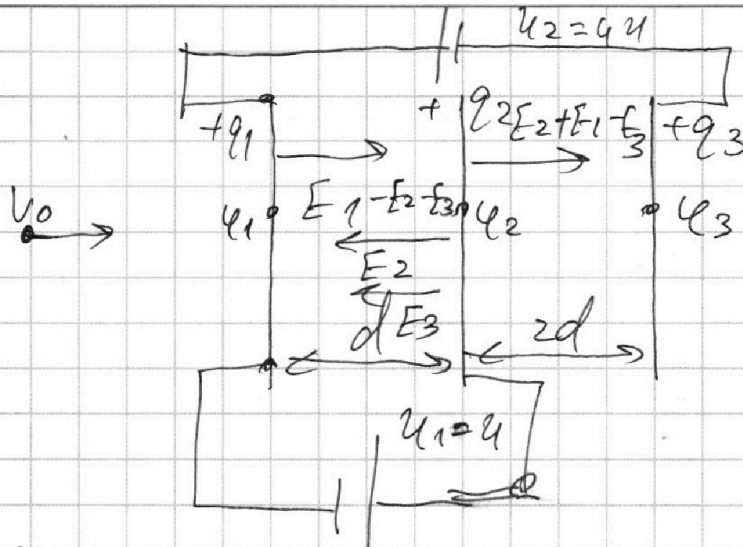 U2=4U
+q1
+ q2
E2+E1-E3
+q3
V0
φ1
E1-E2-E3
φ2
φ3
E2
E3
d
2d
U1=U